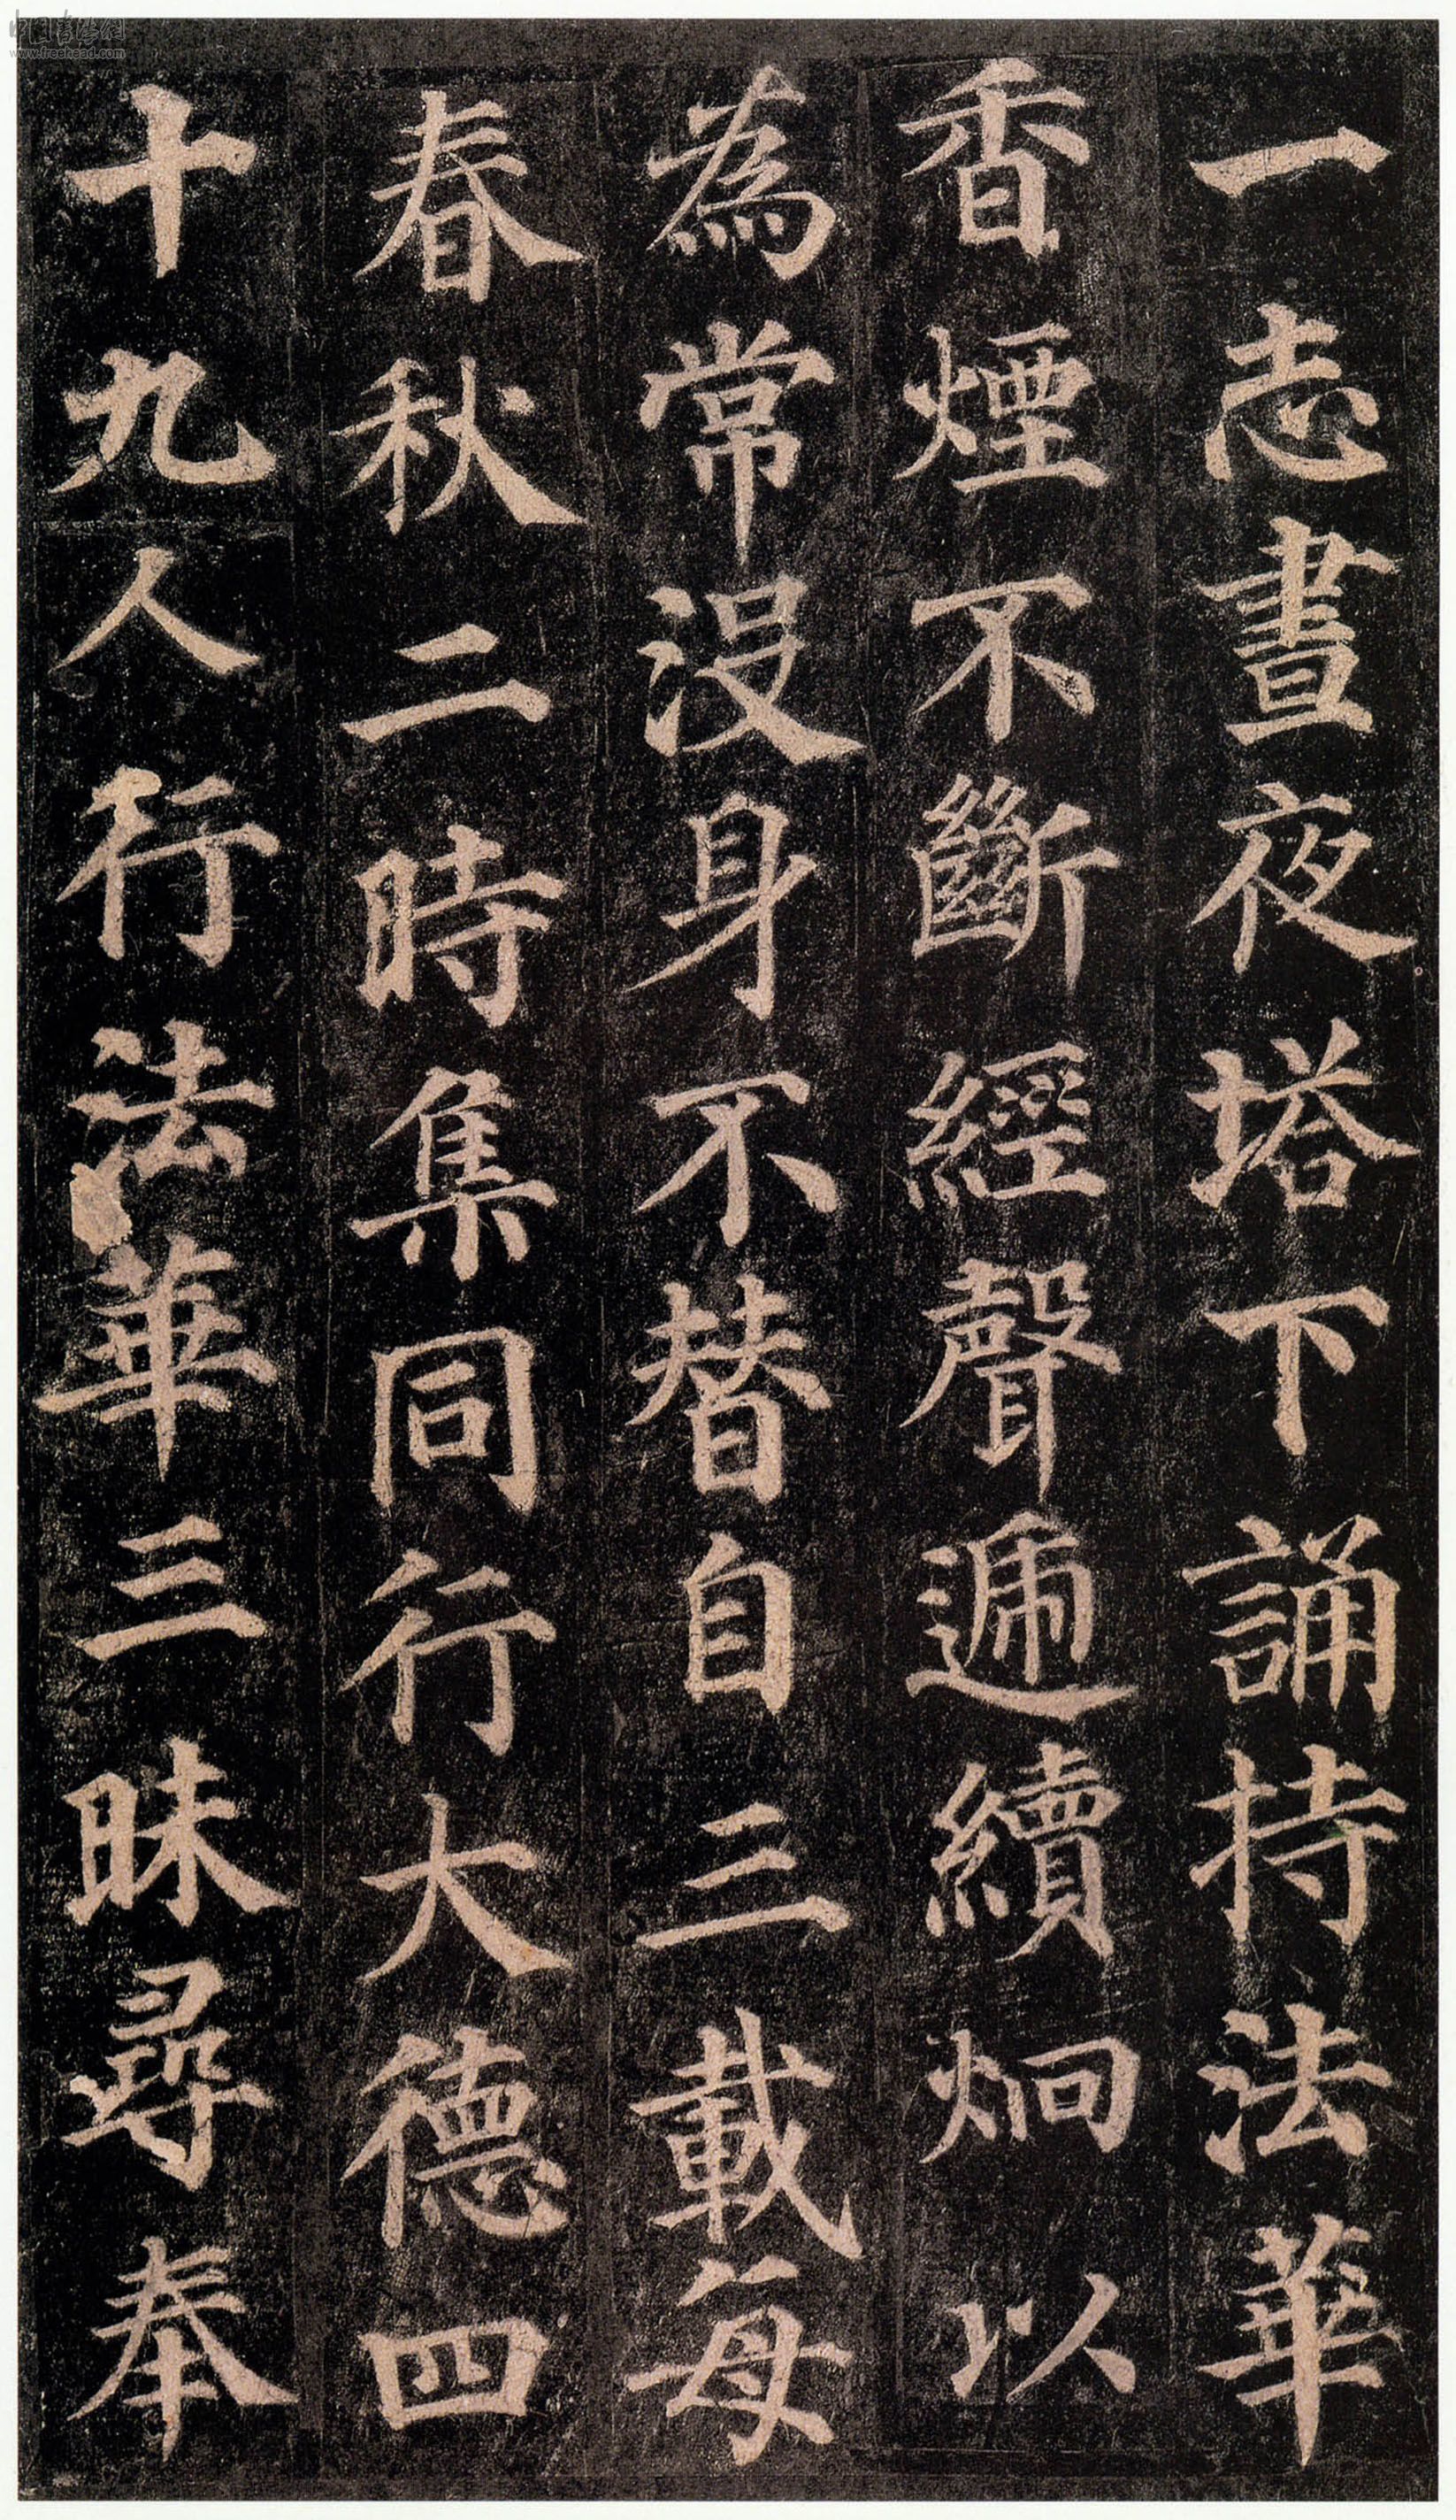 一志晝夜塔下誦持法華
香煙不斷經聲遞續炯以
為常沒身不替自三載每
春秋二時集同行大德四
十九人行法華三昧尋奉
中国书法网
www.freehead.com